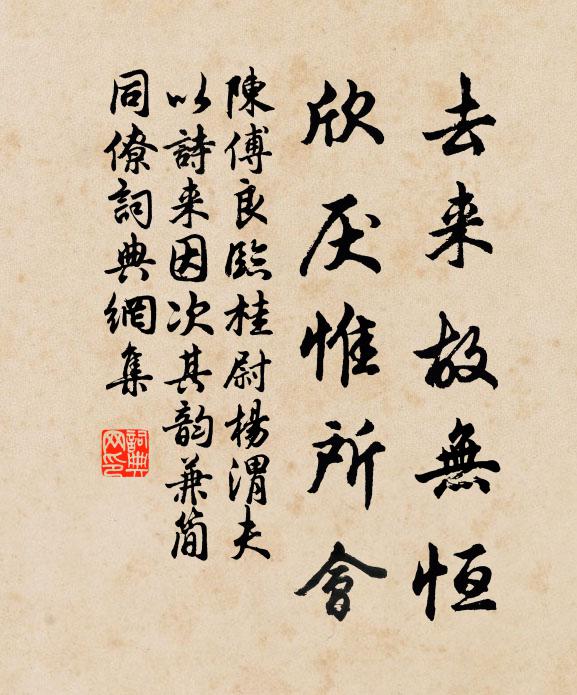 去来故無恒
欣厌惟所會
陳傅良臨桂尉楊渭夫
以詩来因次其韵兼簡
同僚詞典網集
詞典网印